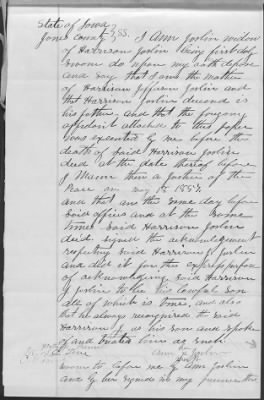 State of Iowa
Jones County } SS. I Ann Joslin widow
of Harrison Joslin being first duly
sworn do upon my oath depose
and say that I am the mother
of Harrison Jefferson Joslin and
that Harrison Joslin deceased is
his father, and that the foregoing
affidavit attached to this paper
was executed by me before the
death of said Harrison Joslin
died at the date thereof before
J Mann then a Justice of the
Peace on May 1855
and that on the same day before
said officer and at the same
time said Harrison Joslin
did signed the acknowledgement
respecting said Harrison J Joslin
and did it for the express purpose
of acknowledging said Harrison
J Joslin to be his lawful son
all of which is true, and also
that he always recognized said
Harrison J as his son and spoke
of and treated him as such
Ann Joslin
sworn to before me by Ann Joslin
and by her signed in my presence this